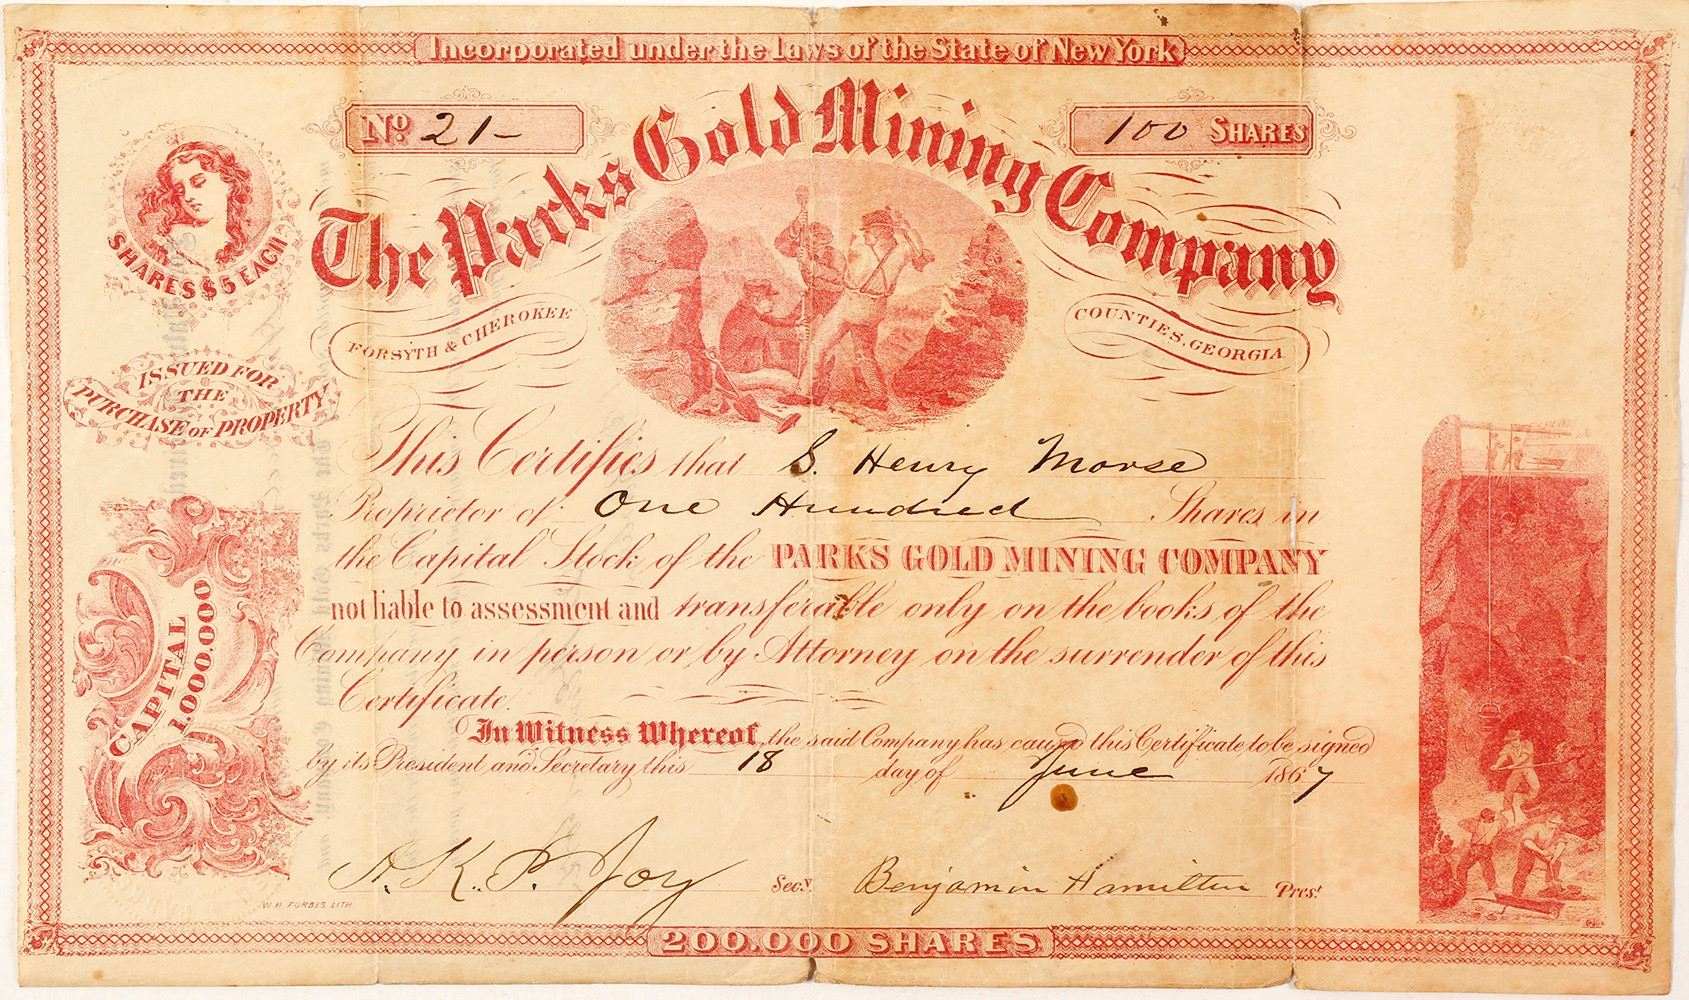 Incorporated under the Laws of the State of New York
No 21-
100 SHARES
The Parks Gold Mining Company
SHARES $5 EACH
FORSYTH & CHEROKEE
COUNTIES, GEORGIA
ISSUED FOR
THE
PURCHASE OF PROPERTY
This Certifies that S. Henry Morse
Proprietor of One Hundred Shares in
the Capital Stock of the PARKS GOLD MINING COMPANY
not liable to assessment and transferable only on the books of the
Company in person or by Attorney on the surrender of this
Certificate.
CAPITAL
1.000.000
In Witness Whereof, the said Company has caused this Certificate to be signed
by its President and Secretary this 18 day of June 1867
A. K. P. Joy Secy. Benjamin Hamilton Prest
W H FORBES LITH
200.000 SHARES